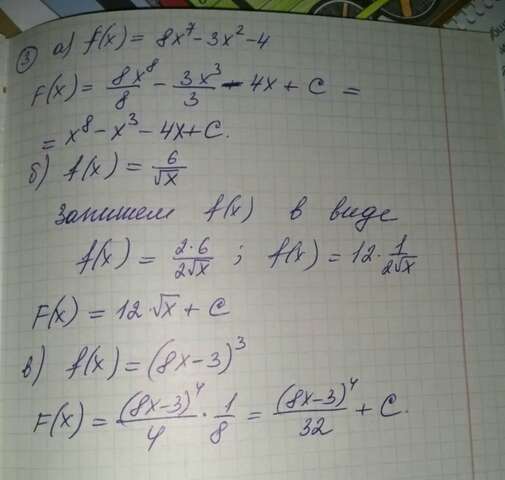 ③ а) f(x) = 8x⁷ - 3x² - 4
F(x) = 8x⁸/8 - 3x³/3 - 4x + C =
= x⁸ - x³ - 4x + C.
б) f(x) = 6/√x
Запишем f(x) в виде
f(x) = 2·6/2√x ; f(x) = 12 · 1/2√x
F(x) = 12·√x + C
в) f(x) = (8x-3)³
F(x) = (8x-3)⁴/4 · 1/8 = (8x-3)⁴/32 + C.